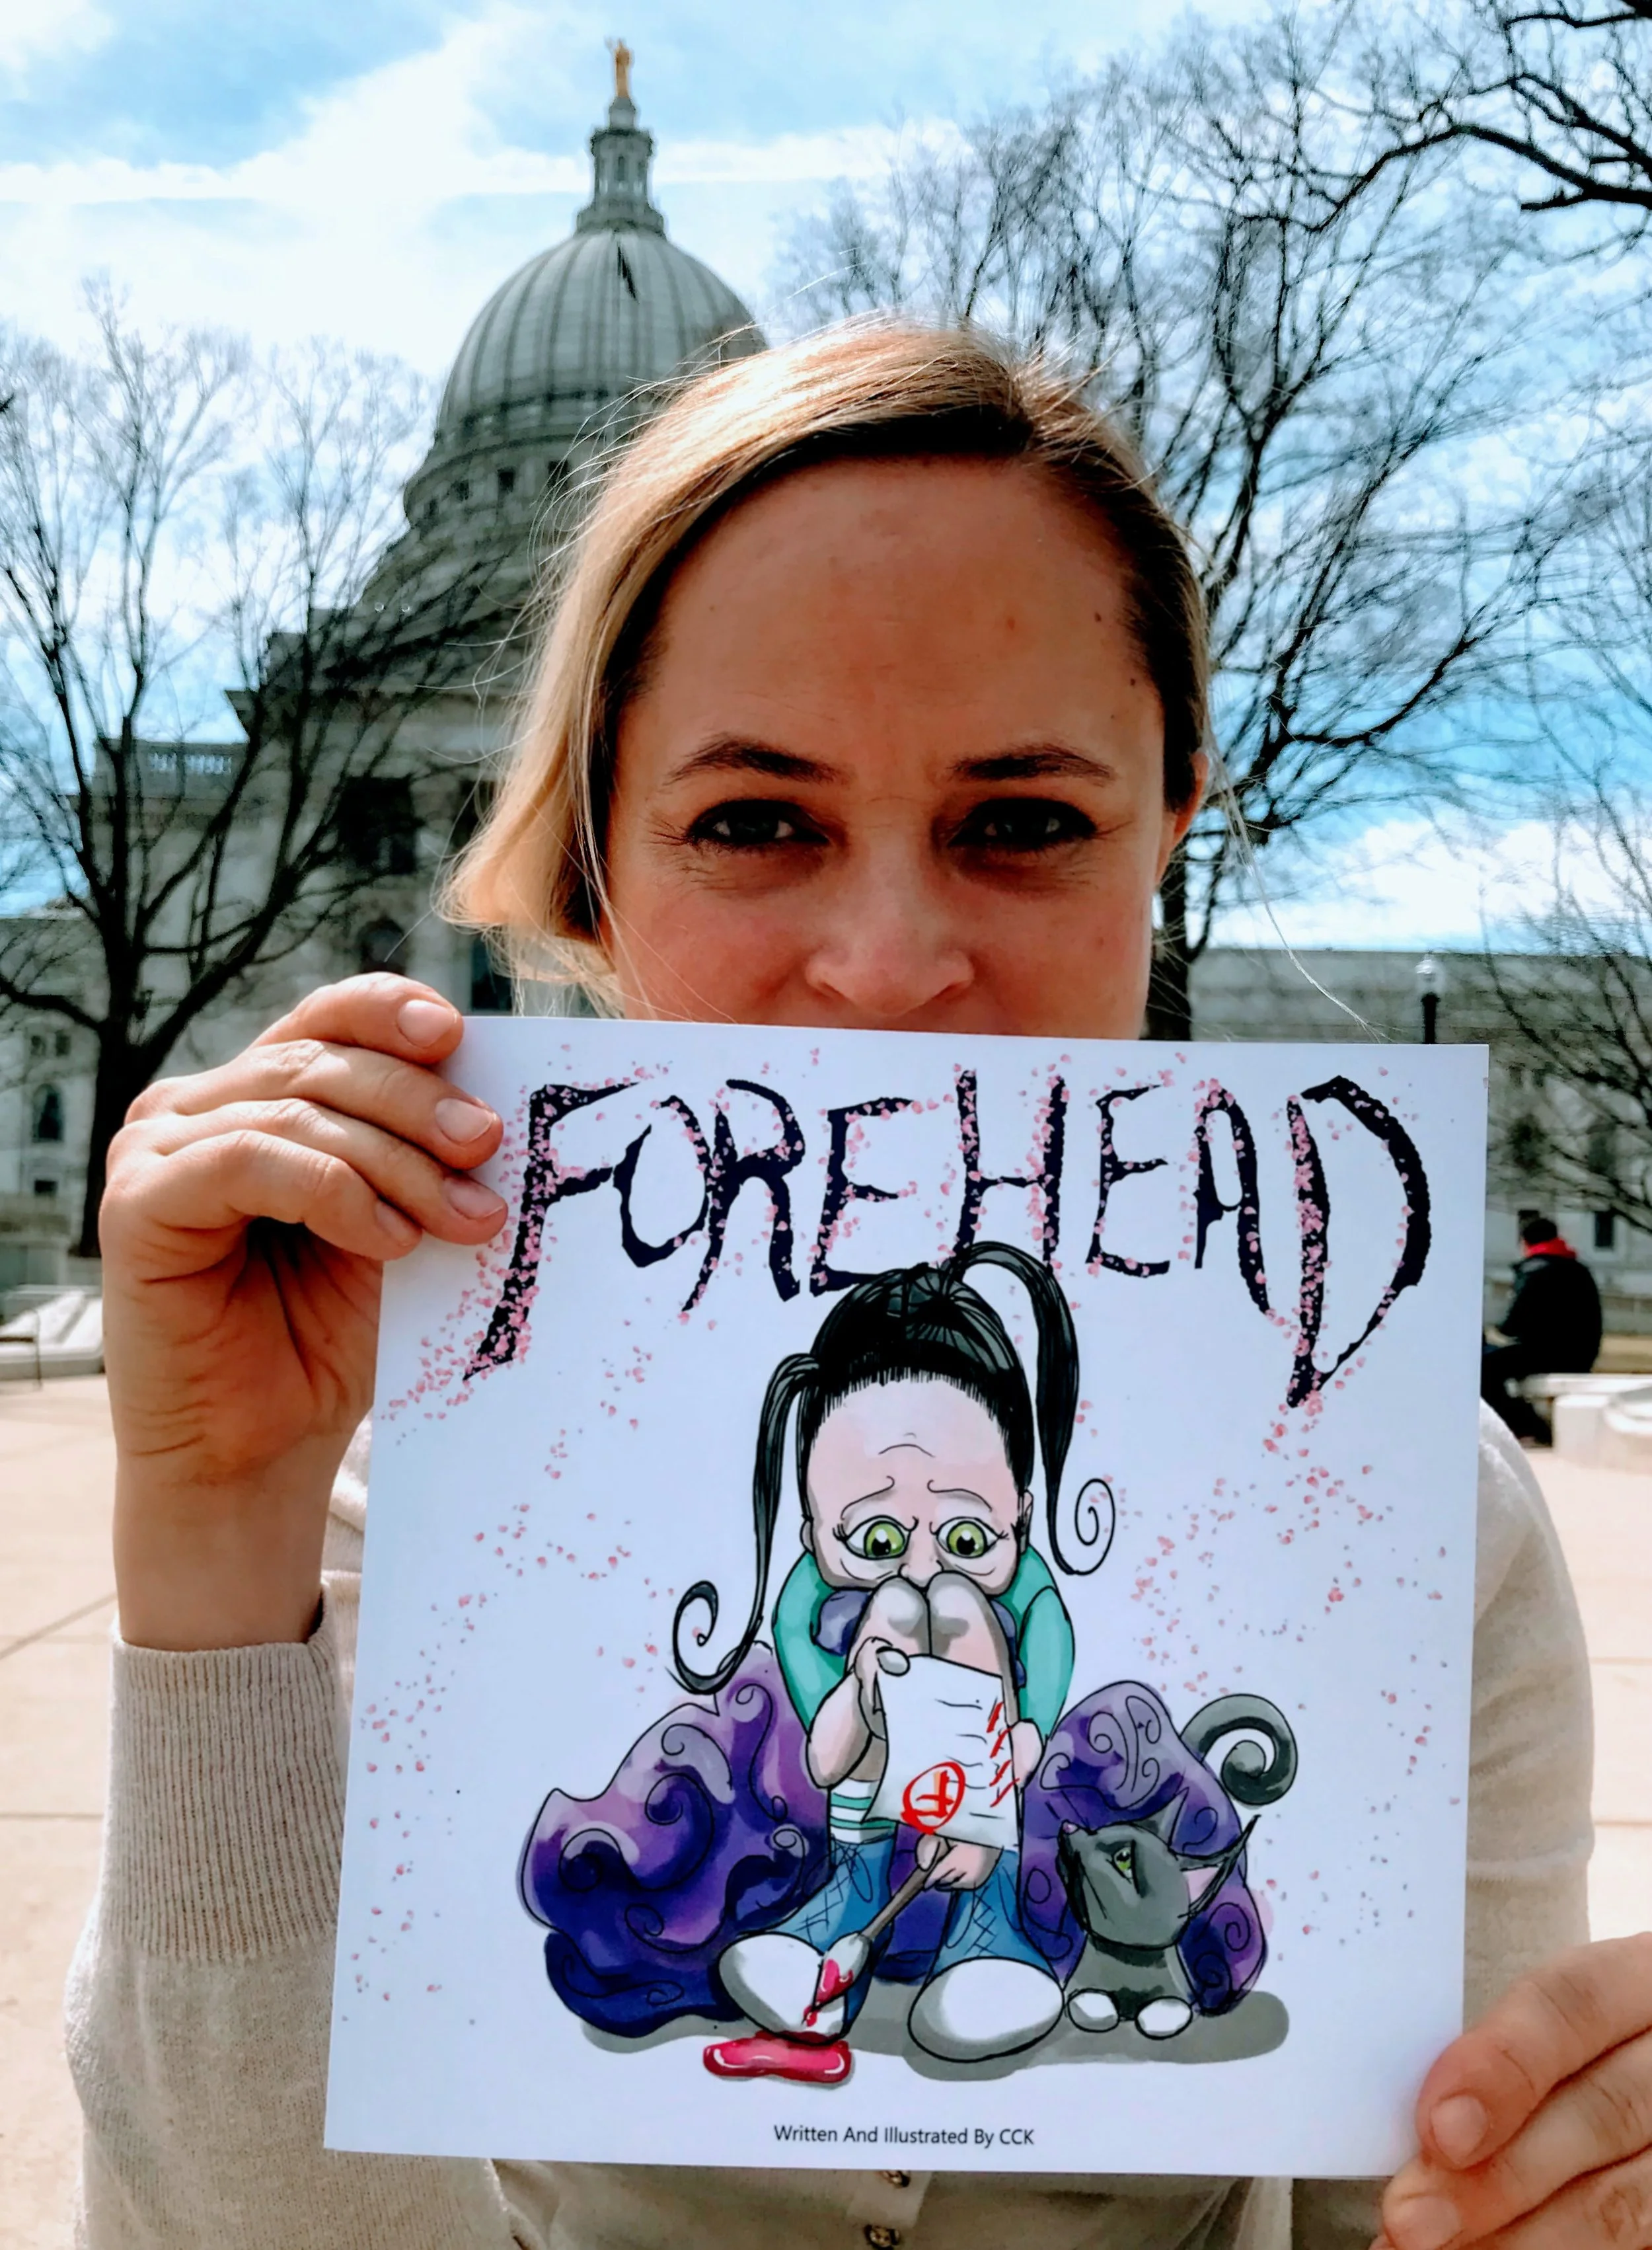 FOREHEAD
F
Written And Illustrated By CCK